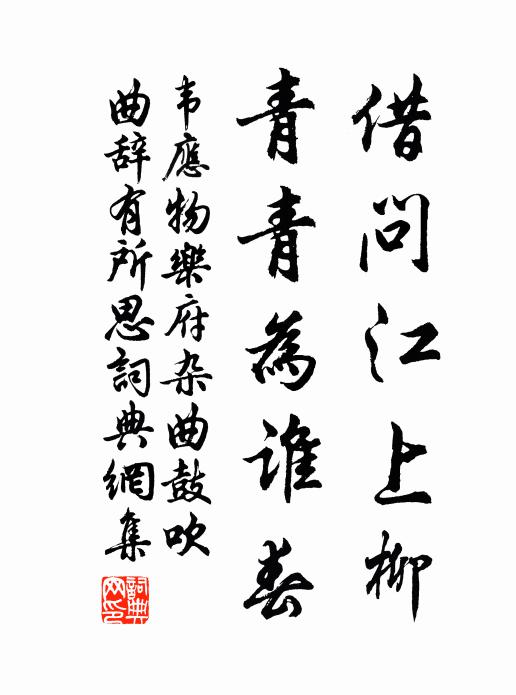 借问江上柳
青青為誰春
韦應物樂府杂曲鼓吹
曲辞有所思詞典網集
詞典
网印